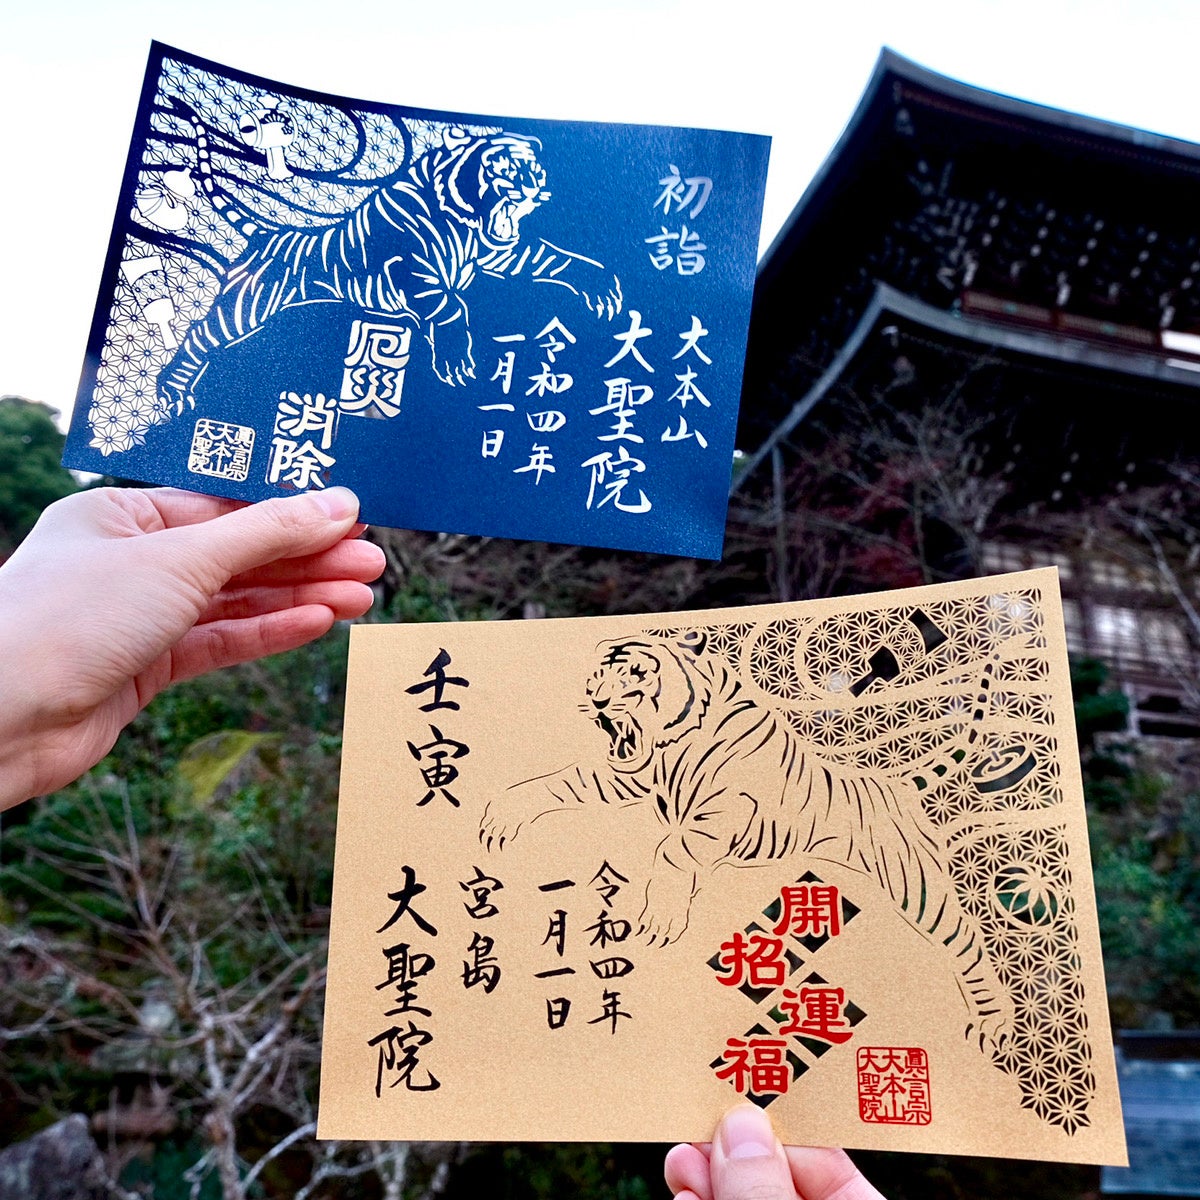 初詣
大本山
大聖院
令和四年
一月一日
厄災
消除
眞言宗
大本山
大聖院
壬寅
宮島
大聖院
令和四年
一月一日
開運
招福
眞言宗
大本山
大聖院